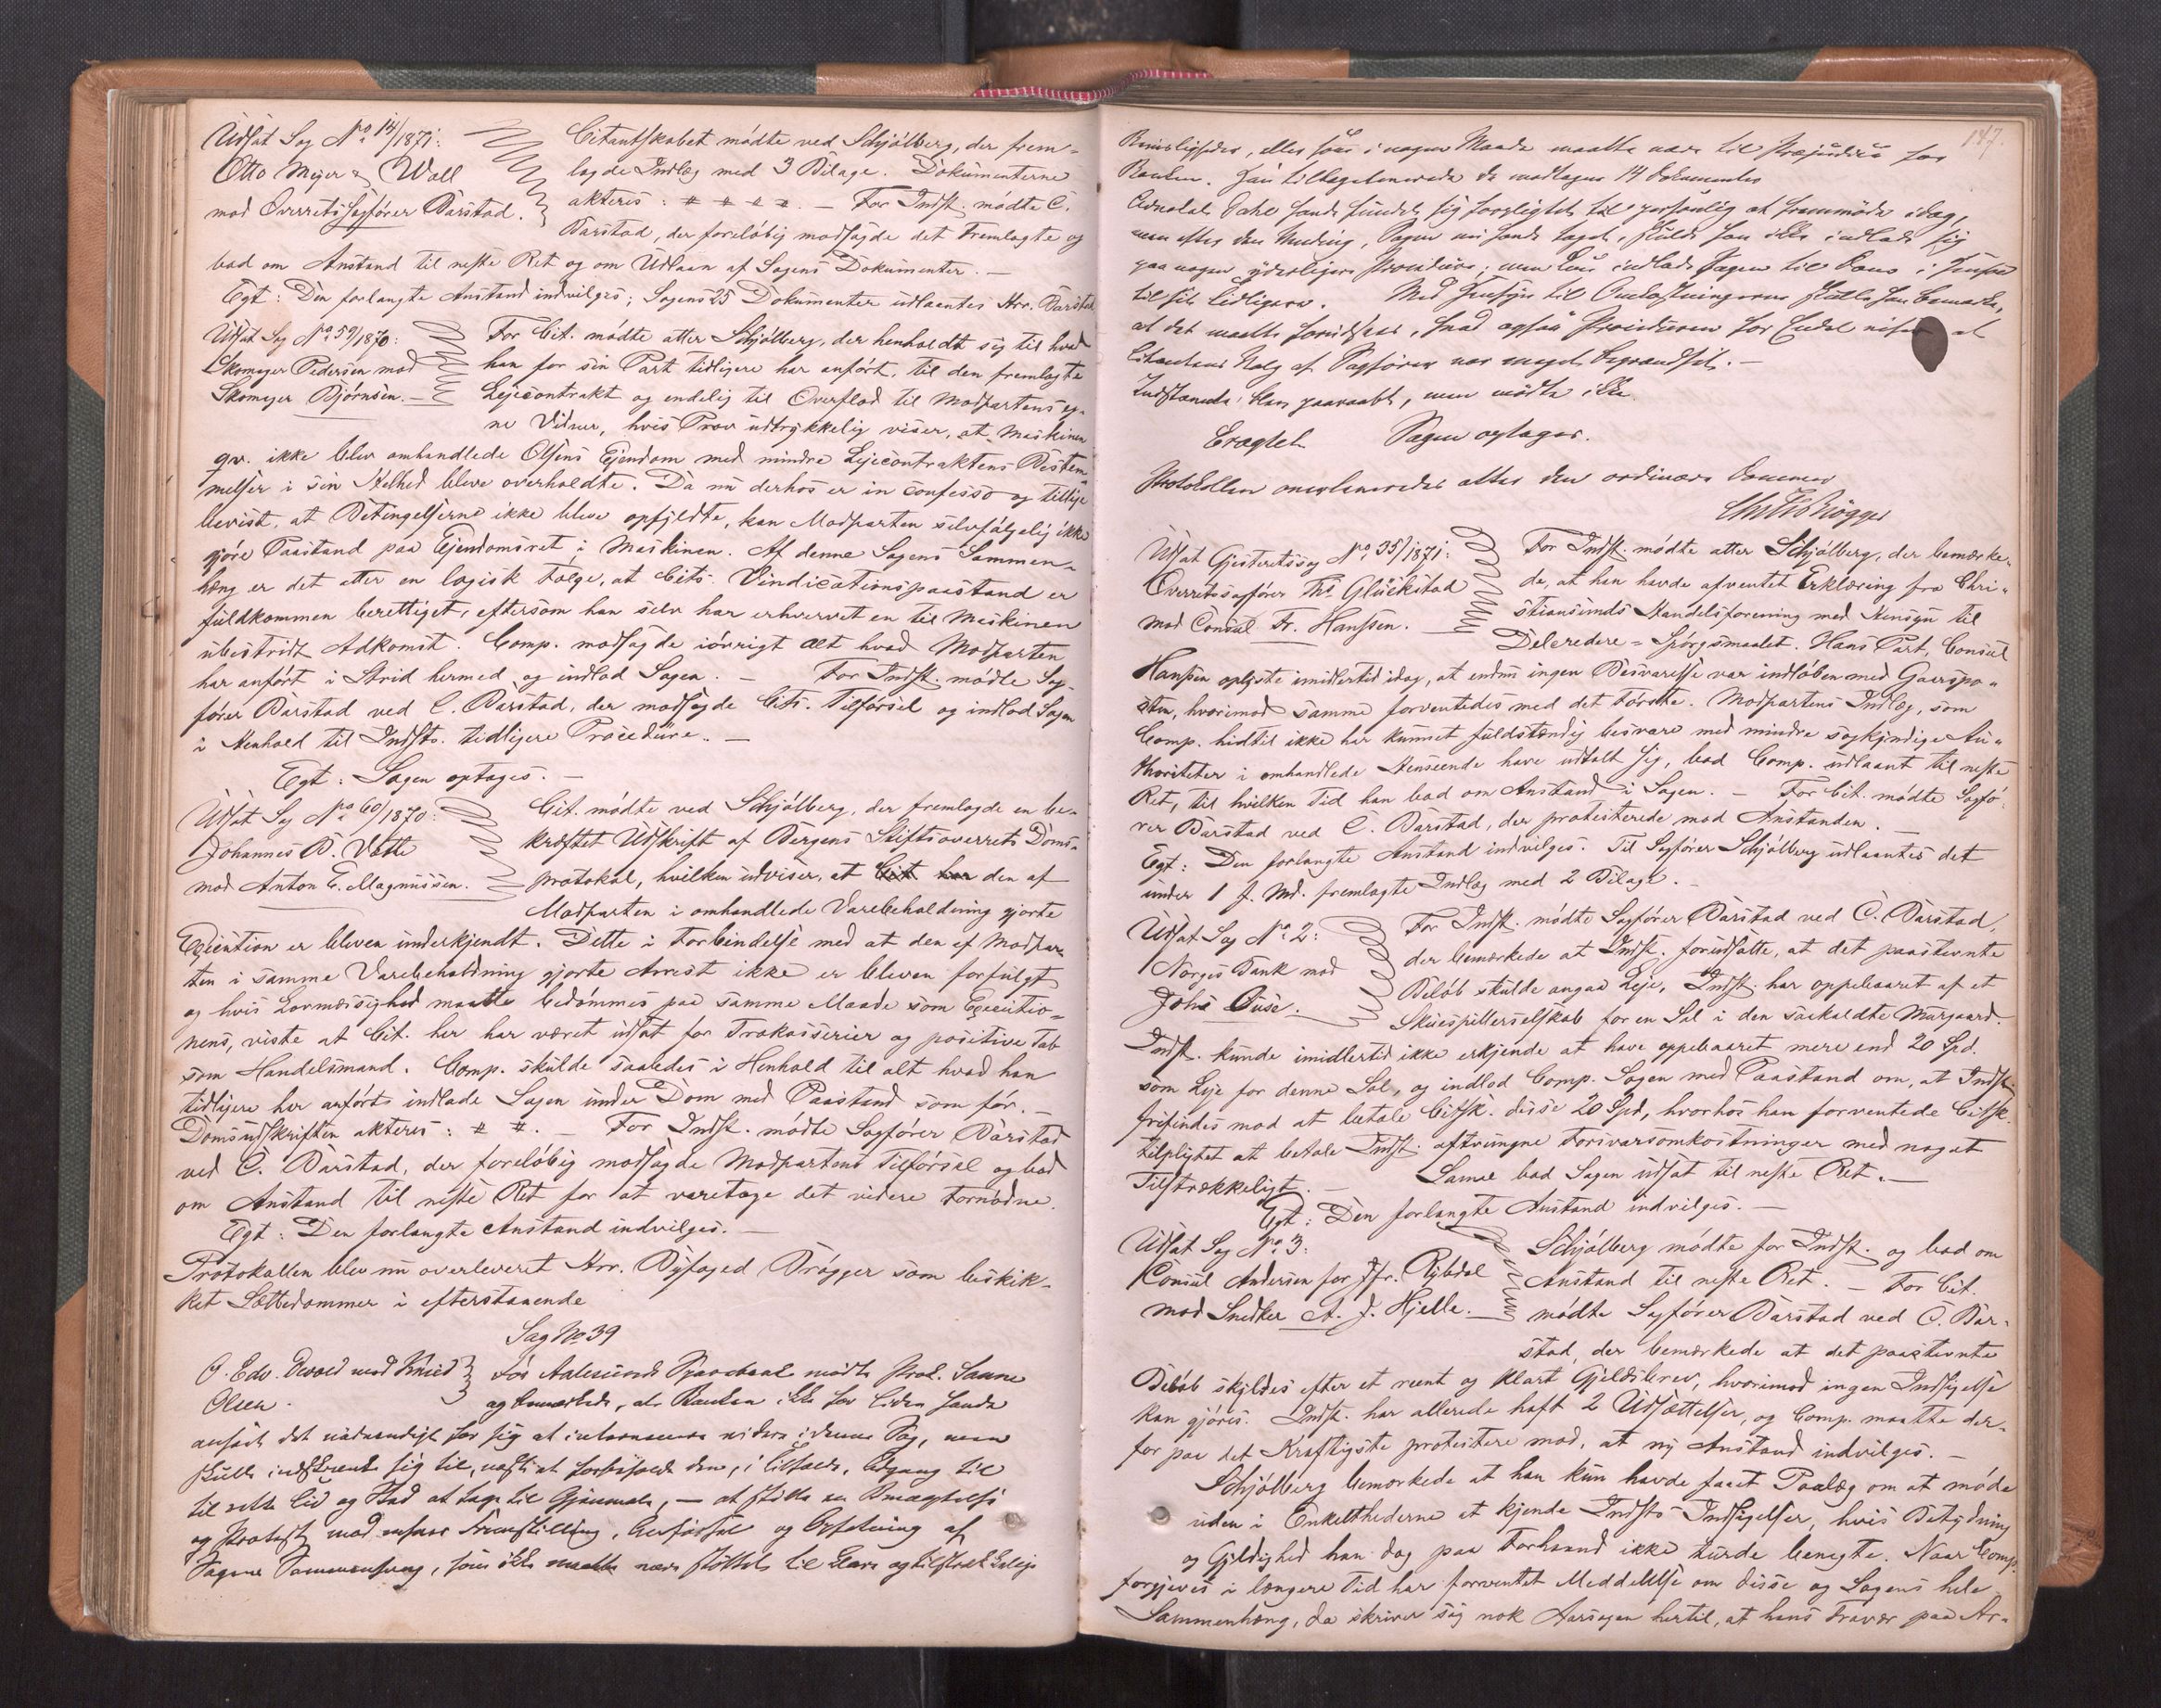 Udsat Sag No 14/1871:
Otto Meyer & Wall
mod Overretssagfører Barstad.
Citantskabet mødte ved Schjølberg, der frem-
lagde Indlæg med 3 Bilage. Dokumenterne
akteres: # # # #. — For Indst. mødte C.
Barstad, der foreløbig modsagde det Fremlagte og
bad om Anstand til neste Ret og om Udlaan af Sagens Dokumenter. —
Egt: Den forlangte Anstand indvilges; Sagens 25 Dokumenter udlaantes Hr. Barstad.
Udsat Sag No 59/1870:
Skomager Pedersen mod
Skomager Bjørnsen. —
For Cit. mødte atter Schjølberg, der henholdt sig til hvad
han for sin Part tidligere har anført, til den fremlagte
Lejecontrakt og endelig til Overflod til Modpartens eg-
ne Vidner, hvis Prov udtrykkelig viser, at Maskinen
qv. ikke blev omhandlede Olsens Ejendom med mindre Lejecontraktens Bestem-
melser i sin Helhed bleve overholdte. Da nu derhos er in confesso og tillige
bevist, at Betingelserne ikke bleve opfyldte, kan Modparten selvfølgelig ikke
gjøre Paastand paa Ejendomsret i Maskinen. Af denne Sagens Sammen-
hæng er det atter en logisk Følge, at Cits. Vindicationspaastand er
fuldkommen berettiget, eftersom han selv har erhvervet en til Maskinen
ubestridt Adkomst. Comp. modsagde iøvrigt alt hvad Modparten
har anført i Strid hermed og indlod Sagen. — For Indst. mødte Sag-
fører Barstad ved C. Barstad, der modsagde Cits. Tilførsel og indlod Sagen
i Henhold til Indsts. tidligere Procedure. —
Egt: Sagen optages. —
Udsat Sag No 60/1870:
Johannes B. Vatte
mod Anton E. Magnussen.
Cit. mødte ved Schjølberg, der fremlagde en be-
kræftet Udskrift af Bergens Stiftsoverrets Doms-
protokol, hvilken udviser, at Cit. har den af
Modparten i omhandlede Varebeholdning gjorte
Execution er bleven underkjendt. Dette i Forbindelse med at den af Modpar-
ten i samme Varebeholdning gjorte Arrest ikke er bleven forfulgt
og hvis Lovmæssighed maatte bedømmes paa samme Maade som Executio-
nens, viste at Cit. her har været udsat for Trakasserier og positive Tab
som Handelsmand. Comp. skulde saaledes i Henhold til alt hvad han
tidligere har anført indlade Sagen under Dom med Paastand som før. —
Domsudskriften akteres: # #. — For Indst. mødte Sagfører Barstad
ved C. Barstad, der foreløbig modsagde Modpartens Tilførsel og bad
om Anstand til neste Ret for at varetage det videre Fornødne.
Egt: Den forlangte Anstand indvilges. —
Protokollen blev nu overleveret Hr. Byfoged Brøgger som beskik-
ket Sættedommer i efterstaaende
Sag No 39
O. Edv. Devold mod Knud
Olsen.
For Aalesunds Sparebank mødte Prok. Sanne
og bemærkede, at Banken ikke for Tiden havde
anseet det nødvendigt for sig at intervenere videre i denne Sag, men
skulle indskrænke sig til, næst at forbeholde den, i Tilfælde, Adgang til
til rette Tid og Sted at tage til Gjenmæle, — at stille en Benægtelse
og Protest mod enhver Fremstilling, Anførsel og Opfatning af
Sagens Sammenhæng, som ikke maatte være støttet til klare og tilstrækkelige
147.
Bevisligheder, eller som i nogen Maade maatte være til Præjudice for
Banken. Han tilbageleverede de modtagne 14 Dokumenter
Advokat Dahl havde fundet sig foranlediget til personlig at fremmøde idag,
men efter den Vending, Sagen nu havde taget, skulde han ikke indlade sig
paa nogen yderligere Procedure; men kun indlade Sagen til Doms i Henhold
til sit Tidligere. Med Hensyn til Omkostningerne skulle han bemærke,
at det maatte forudsees, hvad ogsaa Proceduren for Endel viser at
Citantens Valg af Sagfører var meget begrændset. —
Indstævnte blev paaraabt, men mødte ikke.
Eragtet Sagen optages.
Protokollen overleveredes atter den ordinære Dommer
Udsat Gjesteretssag No 35/1871:
Overretssagfører Ths. Glückstad
mod Consul Fr. Hanssen.
For Indst. mødte atter Schjølberg, der bemærke-
de, at han havde afventet Erklæring fra Chri-
stianssunds Handelsforening med Hensyn til
Delcredere-Spørgsmaalet. Hans Part, Consul
Hanssen oplyste imidlertid idag, at endnu ingen Besvarelse var indløben med Gaarspo-
sten, hvorimod samme forventedes med det Første. Modpartens Indlæg, som
Comp. hidtil ikke har kunnet fuldstændig besvare med mindre sagkyndige Au-
thoriteter i omhandlede Henseende have udtalt sig, bad Comp. udlaant til neste
Ret, til hvilken Tid han bad om Anstand i Sagen. — For Cit. mødte Sagfø-
rer Barstad ved C. Barstad, der protesterede mod Anstanden. —
Egt: Den forlangte Anstand indvilges. Til Sagfører Schjølberg udlaantes det
under 1 f. Md. fremlagte Indlæg med 2 Bilage. —
Udsat Sag No 2:
Norges Bank mod
Johs Buse.
For Indst. mødte Sagfører Barstad ved C. Barstad,
der bemærkede at Indst. forudsatte, at det paastevnte
Beløb skulde angaa Leje, Indst. har oppebaaret af et
Skuespillerselskab for en Sal i den saakaldte Murgaard.
Indst. kunde imidlertid ikke erkjende at have oppebaaret mere end 20 Spd.
som Leje for denne Sal, og indlod Comp. Sagen med Paastand om, at Indst.
frifindes mod at betale Citsk. disse 20 Spd, hvorhos han forventede Citsk.
tilpligtet at betale Indst. aftvungne Forsvarsomkostninger med noget
Tilstrækkeligt. — Sanne bad Sagen udsat til neste Ret. —
Egt: Den forlangte Anstand indvilges. —
Udsat Sag No 3:
Consul Andersen for Jfr. Rybdal
mod Snedker A. J. Hjelle. —
Schjølberg mødte for Indst. og bad om
Anstand til neste Ret. — For Cit.
mødte Sagfører Barstad ved C. Bar-
stad, der bemærkede at det paastevnte
Beløb skyldes efter et reent og klart Gjeldsbrev, hvorimod ingen Indsigelse
kan gjøres. Indst. har allerede haft 2 Udsættelser, og Comp. maatte der-
for paa det Kraftigste protestere mod, at ny Anstand indvilges. —
Schjølberg bemærkede at han kun havde faaet Paalæg om at møde
uden i Enkelthederne at kjende Indsts Indsigelser, hvis Betydning
og Gyldighed han dog paa Forhaand ikke turde benegte. Naar Comp.
forgjeves i længere Tid har forventet Meddelelse om disse og Sagens hele
Sammenhæng, da skriver sig nok Aarsagen hertil, at hans Fravær paa Ar-